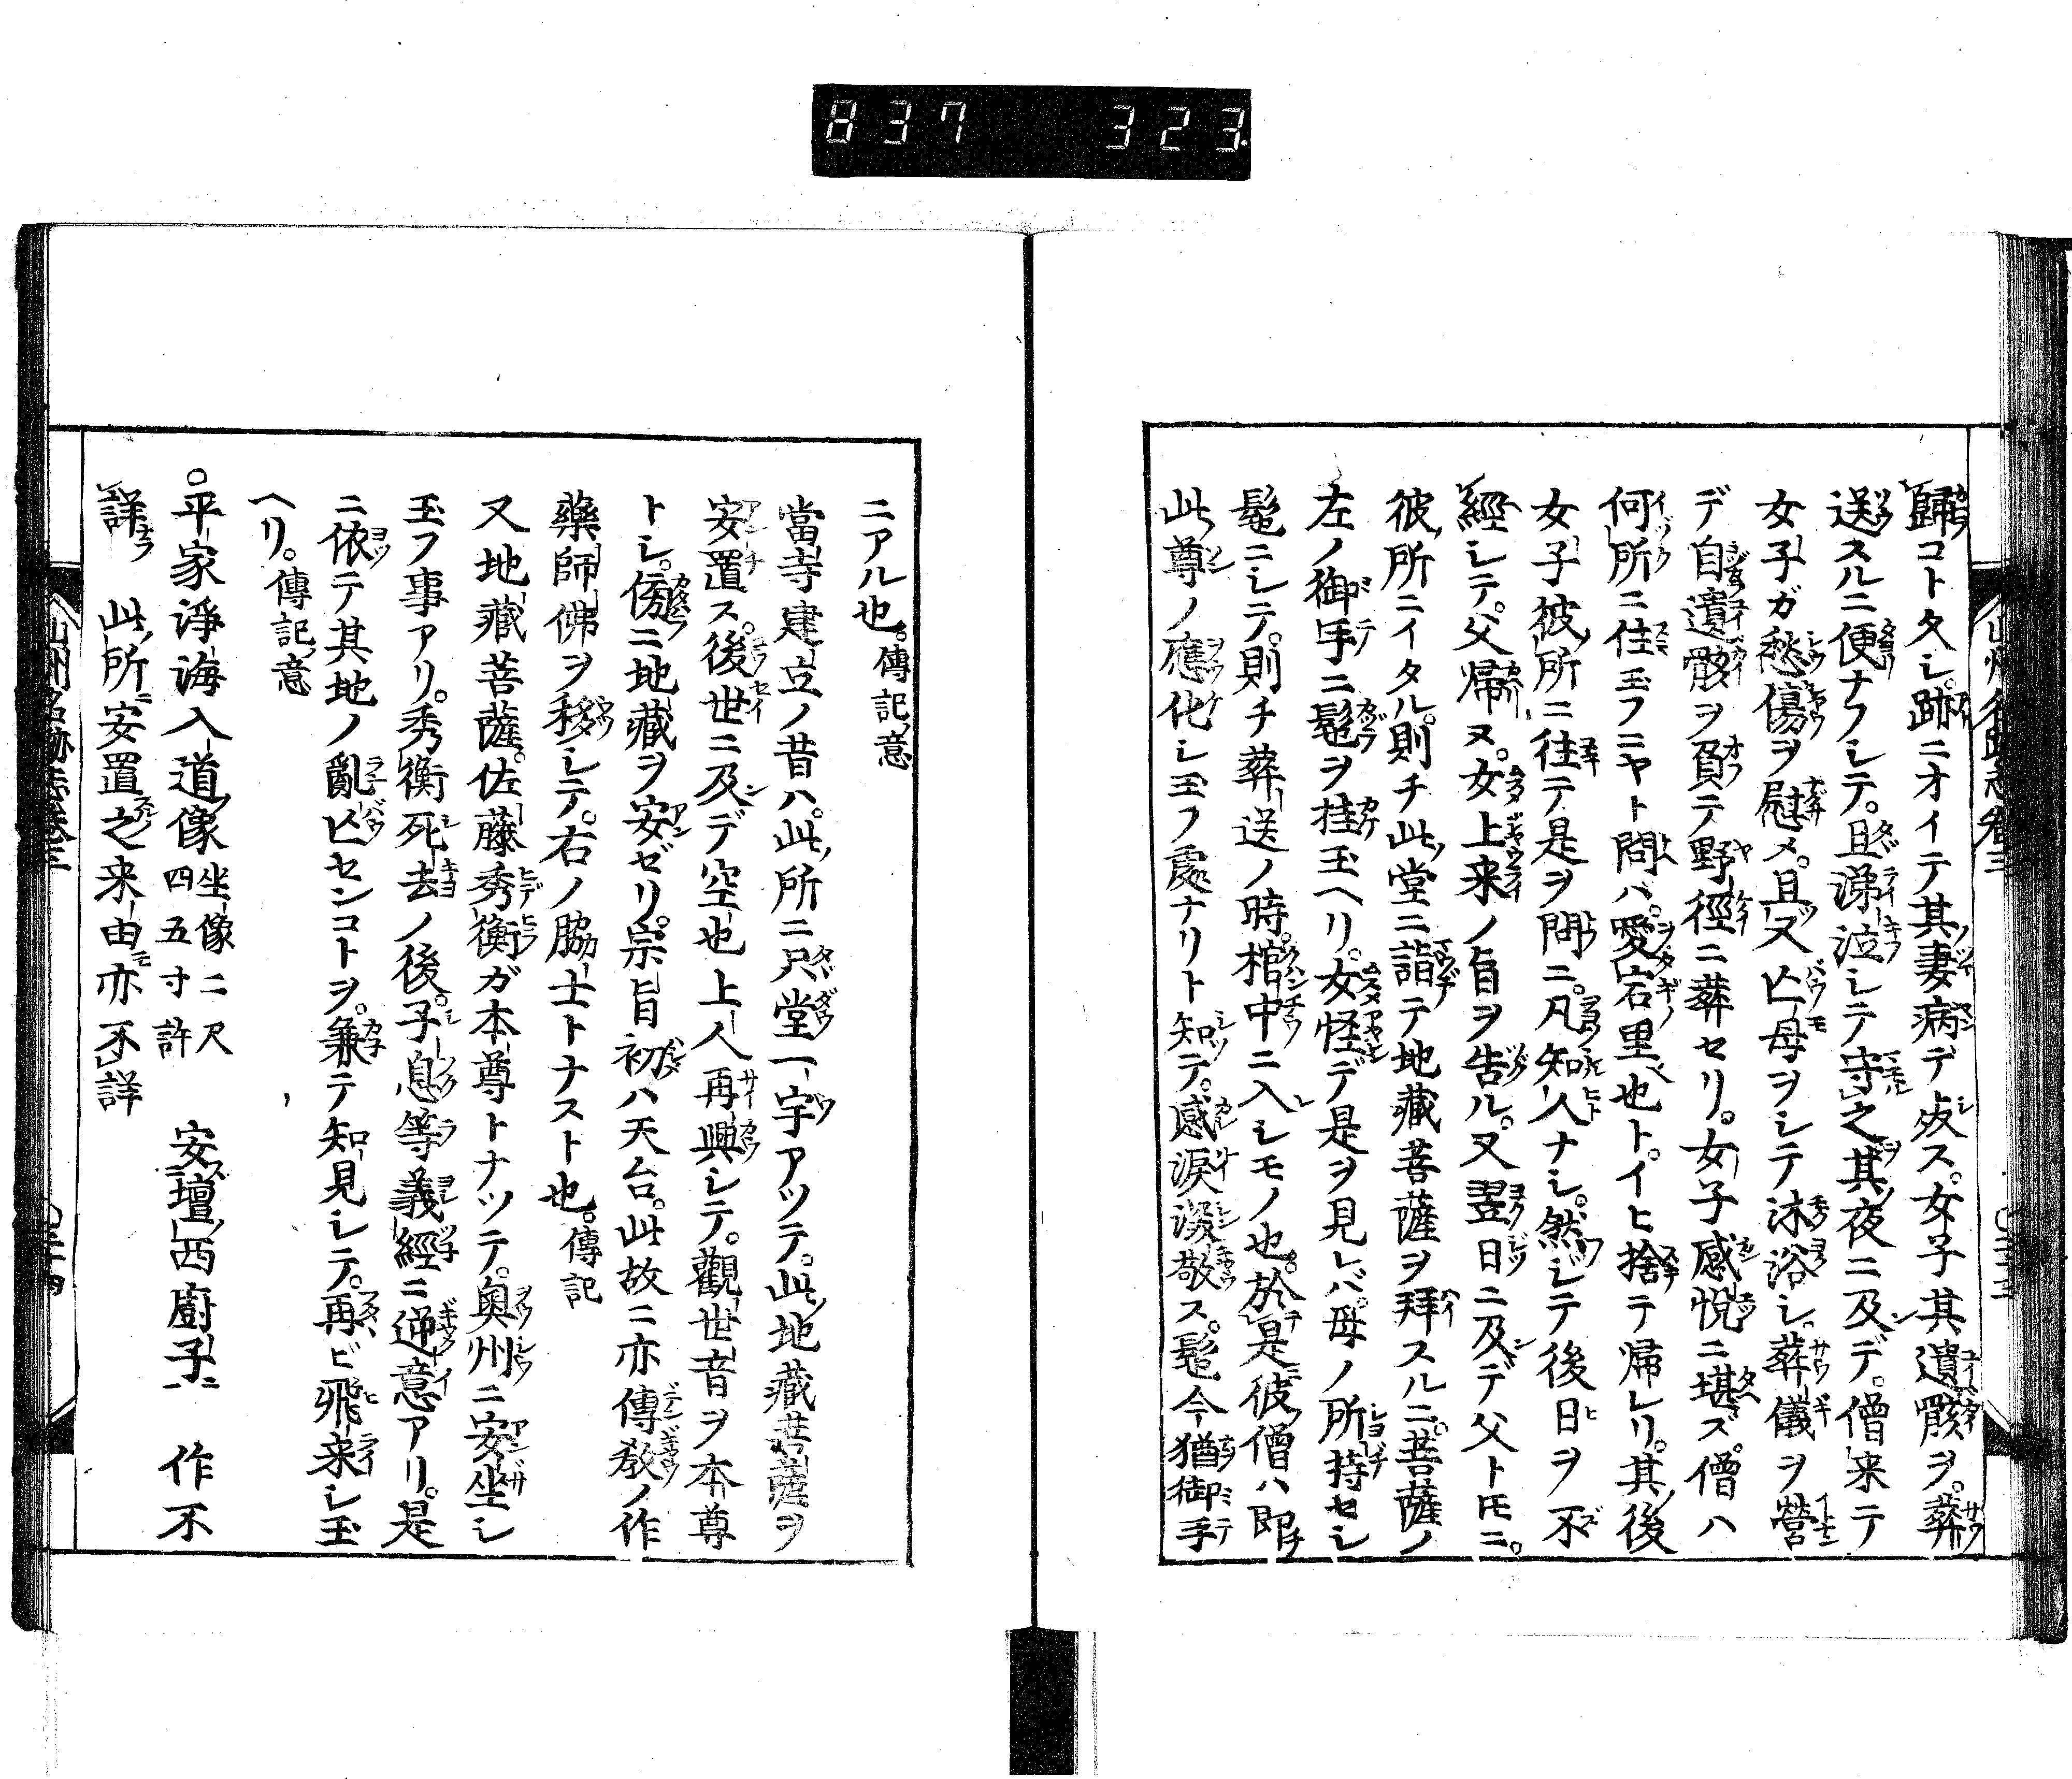 837 323
歸コト久シ。跡ニオイテ其妻病デ歿ス。女子其遺骸ヲ。葬
送スルニ便ナフシテ。且涕泣シテ守之其夜ニ及デ。僧来テ
女子ガ愁傷ヲ慰メ。且又亡母ヲシテ沐浴シ。葬儀ヲ營
デ自遺骸ヲ負テ野徑ニ葬セリ。女子感悦ニ堪ズ。僧ハ
何所ニ住玉フニヤト問バ。愛宕里也ト。イヒ捨テ帰レリ。其後
女子彼所ニ往テ是ヲ問ニ。凡知人ナシ。然シテ後日ヲ不
經シテ。父帰ヌ。女上来ノ旨ヲ告ル。又翌日ニ及デ父トモニ。
彼所ニイタル。則チ此堂ニ詣テ地藏菩薩ヲ拜スルニ。菩薩ノ
左ノ御手ニ鬘ヲ挂玉ヘリ。女怪デ是ヲ見レバ。母ノ所持セシ
鬘ニシテ。則チ葬送ノ時。棺中ニ入シモノ也。於是彼僧ハ即チ
此尊ノ應化シ玉フ處ナリト知テ。感涙渇敬ス。鬘今猶御手
山州名跡志卷三
ニアル也。傳記意
當寺建立ノ昔ハ。此所ニ只堂一宇アツテ。此地藏菩薩ヲ
安置ス。後世ニ及デ空也上人再興シテ。觀世音ヲ本尊
トシ。傍ニ地藏ヲ安ゼリ。宗旨初ハ天台。此故ニ亦傳教ノ作
藥師佛ヲ移シテ。右ノ脇士トナスト也。傳記
又地藏菩薩。佐藤秀衡ガ本尊トナツテ。奥州ニ安坐シ
玉フ事アリ。秀衡死去ノ後。子息等義經ニ逆意アリ。是
ニ依テ其地ノ亂亡センコトヲ。兼テ知見シテ。再ビ飛来シ玉
ヘリ。傳記意
○平家淨海入道像 坐像二尺四五寸許 安壇西廚子 作不
詳 此所安置之来由亦不詳
山州名跡志卷三